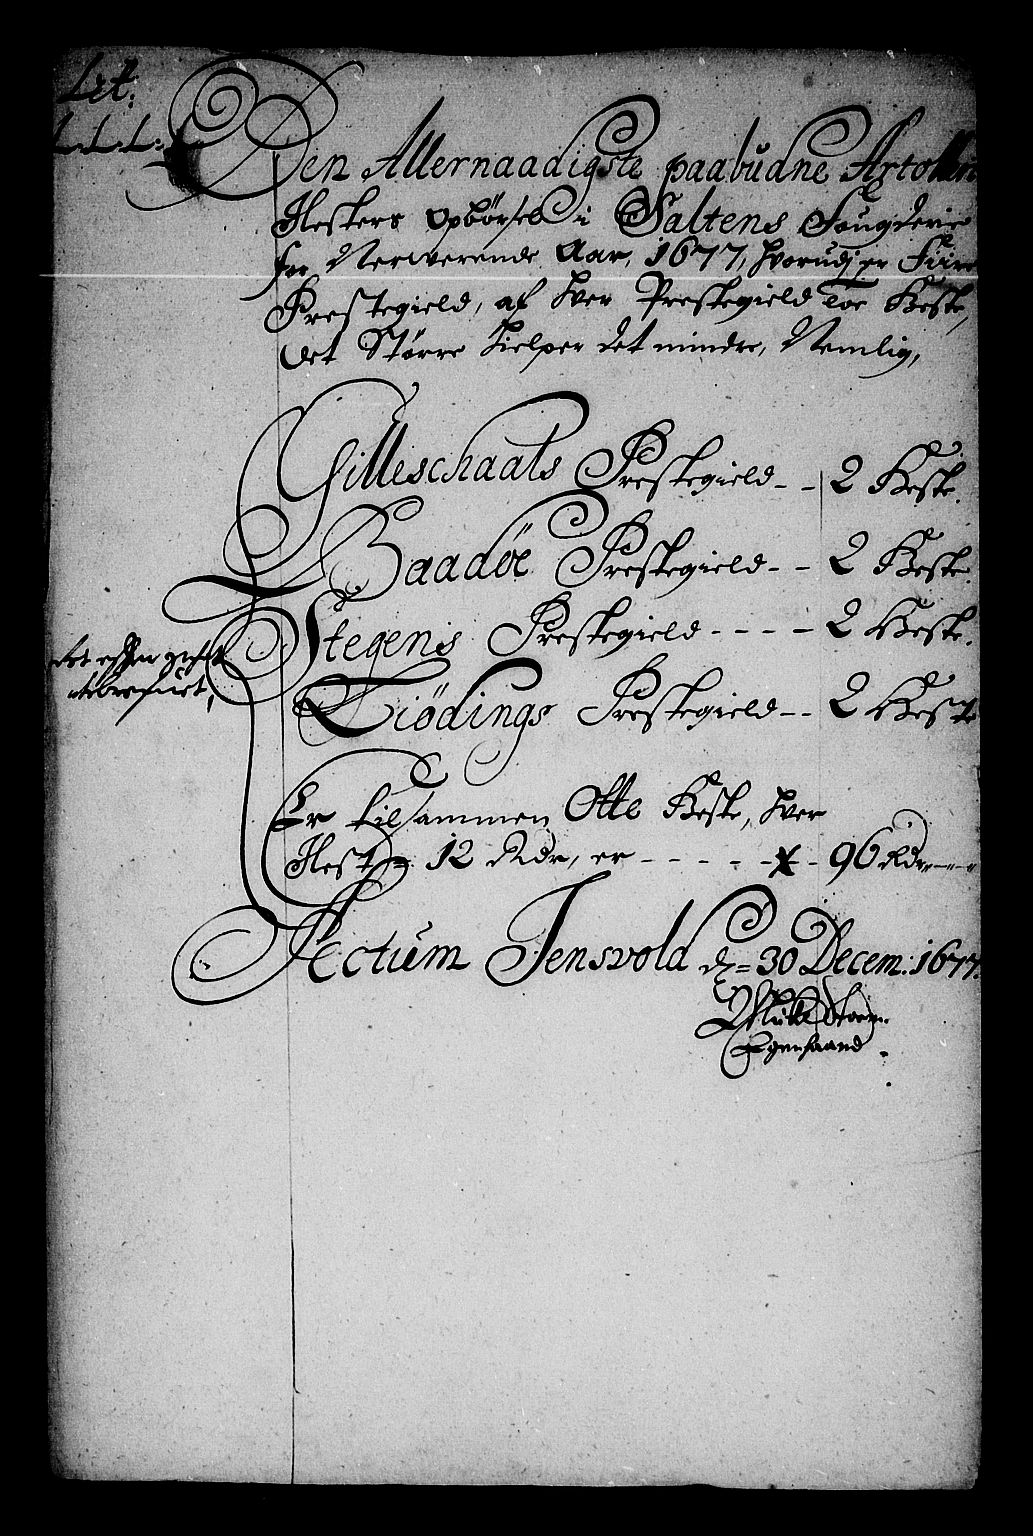 Lit:
L. L. L. L.
Den Allernaadigste paabudne Artolleri
Hesters opbørsel i Saltens Fougderie
for Nerwerende Aar, 1677, hvorudj er Fiire
Prestegield, af hver Prestegield toe Heste,
det Større hielper det mindre, Nemlig,
Gilleschaals Prestegield - - 2 Heste.
Baadöe Prestegield - - 2 Heste.
Stegens Prestegield - - - - 2 Heste.
det
Tiödings Prestegield - - 2 Heste
Er tilsammen Otte Heste, hver
Hest = 12 Rdr, er - - - - - - 96 Rdr - - -
Actum Jensvold d = 30 Decem: 1677.
Egenhaand.